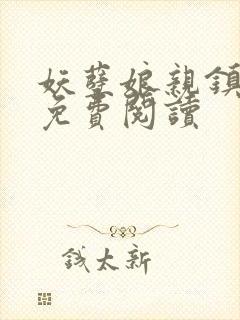 妖孽娘親鎮
免費閱讀
錢太新